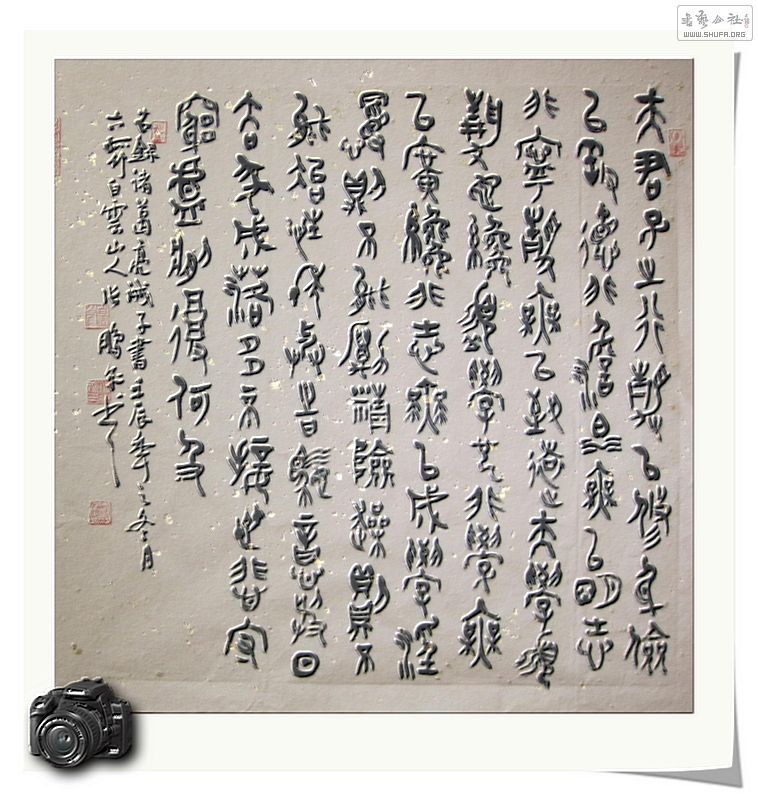 夫君子之行靜以修身儉
以養德非澹泊無以明志
非寧靜無以致遠夫學須
靜也才須學也非學無
以廣才非志無以成學淫
慢則不能勵精險躁則不
能治性年與時馳意與日
去成落多不接世悲守
窮廬將復何及
錄諸葛亮誡子書壬辰年之冬月
白雲山人張鵬書
書藝公社
WWW.SHUFA.ORG